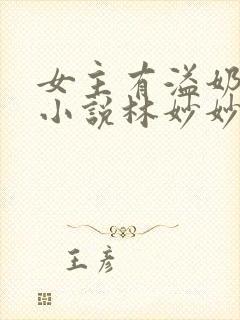 女主有溢奶
小说林妙妙
王彦